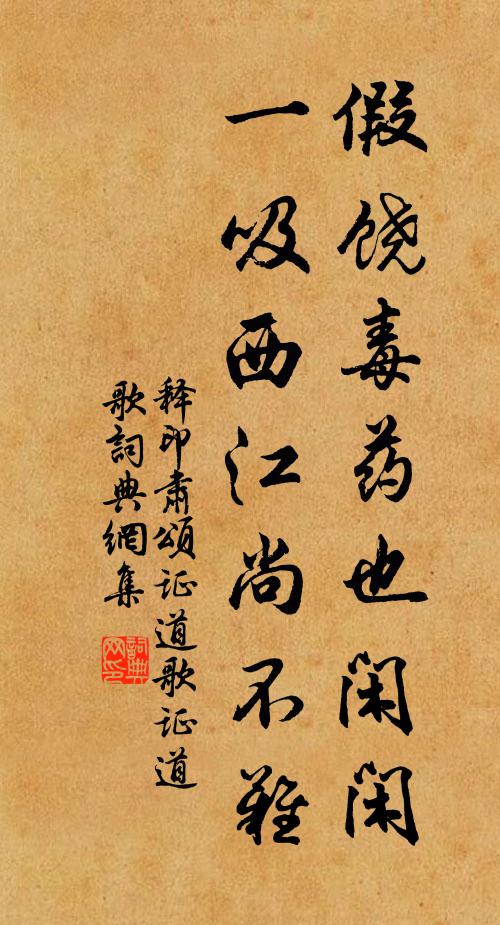 假饶毒药也闲闲
一吸西江尚不难
释印肃颂证道歌证道
歌词典網集
詞典
网印